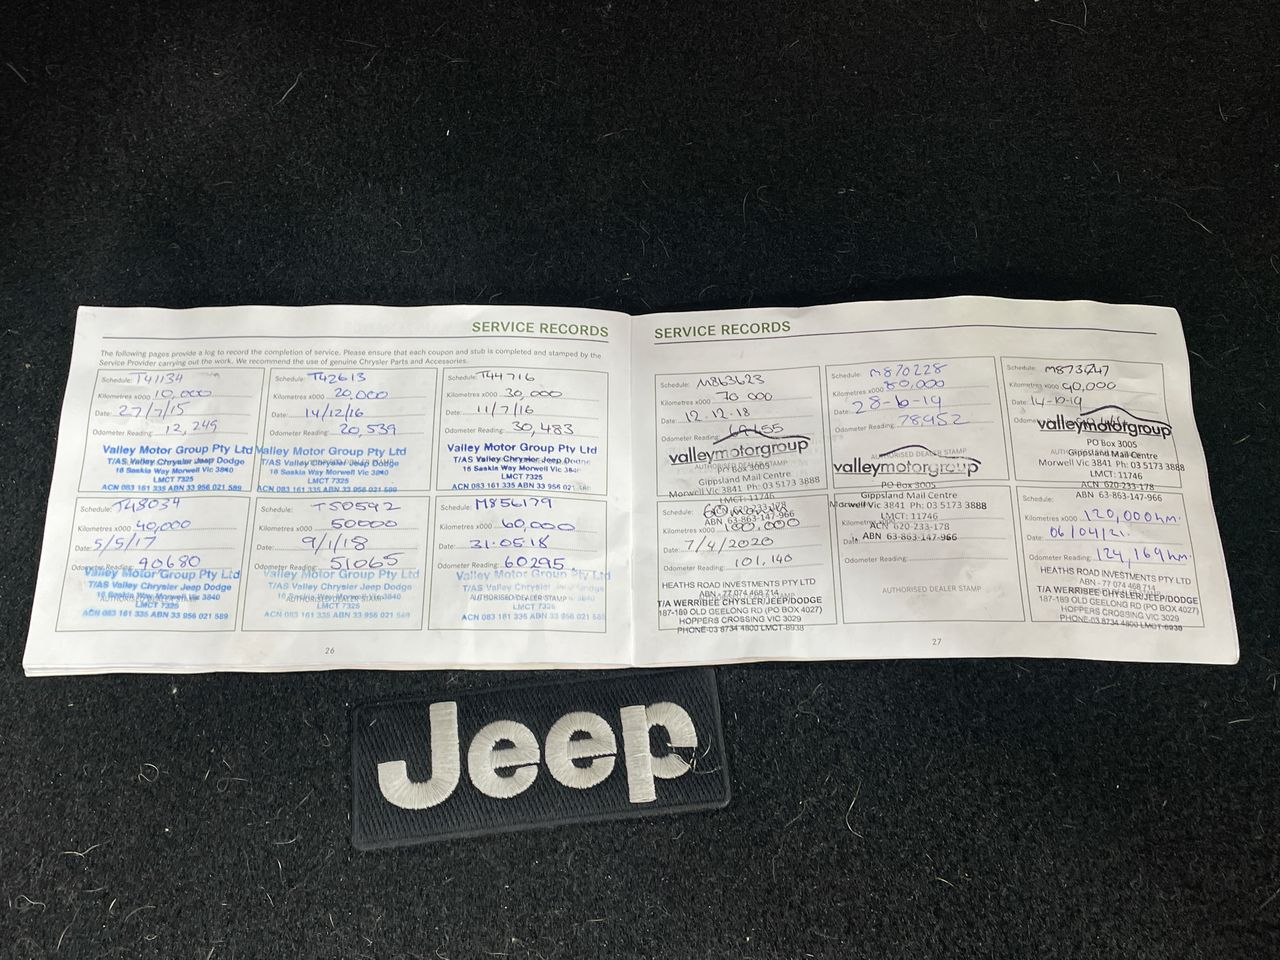 SERVICE RECORDS
The following pages provide a log to record the completion of service. Please ensure that each coupon and stub is completed and stamped by the
Service Provider carrying out the work. We recommend the use of genuine Chrysler Parts and Accessories.
Schedule: T41134
Kilometres x000 10,000
Date: 27/7/15
Odometer Reading: 12,249
Valley Motor Group Pty Ltd
T/AS Valley Chrysler Jeep Dodge
16 Saskia Way Morwell Vic 3840
LMCT 7325
ACN 083 161 335 ABN 33 956 021 589
Schedule: T42613
Kilometres x000 20,000
Date: 14/12/16
Odometer Reading: 20,539
Valley Motor Group Pty Ltd
T/AS Valley Chrysler Jeep Dodge
16 Saskia Way Morwell Vic 3840
LMCT 7325
ACN 083 161 335 ABN 33 956 021 589
Schedule: T44716
Kilometres x000 30,000
Date: 11/7/16
Odometer Reading: 30,483
Valley Motor Group Pty Ltd
T/AS Valley Chrysler Jeep Dodge
16 Saskia Way Morwell Vic 3840
LMCT 7325
ACN 083 161 335 ABN 33 956 021 589
Schedule: T48034
Kilometres x000 40,000
Date: 5/5/17
Odometer Reading: 40680
Valley Motor Group Pty Ltd
T/AS Valley Chrysler Jeep Dodge
16 Saskia Way Morwell Vic 3840
LMCT 7325
ACN 083 161 335 ABN 33 956 021 589
Schedule: T50592
Kilometres x000 50000
Date: 9/1/18
Odometer Reading: 51065
Valley Motor Group Pty Ltd
T/AS Valley Chrysler Jeep Dodge
16 Saskia Way Morwell Vic 3840
LMCT 7325
ACN 083 161 335 ABN 33 956 021 589
Schedule: M856179
Kilometres x000 60,000
Date: 31.05.18
Odometer Reading: 60295
Valley Motor Group Pty Ltd
T/AS Valley Chrysler Jeep Dodge
AUTHORISED DEALER STAMP
LMCT 7325
ACN 083 161 335 ABN 33 956 021 589
26
SERVICE RECORDS
Schedule: M863623
Kilometres x000 70 000
Date: 12.12.18
Odometer Reading: 69155
valleymotorgroup
AUTHORISED DEALER STAMP
PO Box 3005
Gippsland Mail Centre
Morwell Vic 3841 Ph: 03 5173 3888
LMCT: 11746
ACN 620-233-178
ABN 63-863-147-966
Schedule: M870228
Kilometres x000 80,000
Date: 28-6-19
Odometer Reading: 78952
AUTHORISED DEALER STAMP
valleymotorgroup
PO Box 3005
Gippsland Mail Centre
Morwell Vic 3841 Ph: 03 5173 3888
LMCT: 11746
ACN 620-233-178
ABN 63-863-147-966
Schedule:
Kilometres x000 90,000
Date: 14-10-19
Odometer Reading:
valleymotorgroup
PO Box 3005
Gippsland Mail Centre
Morwell Vic 3841 Ph: 03 5173 3888
LMCT: 11746
ACN 620-233-178
ABN 63-863-147-966
Kilometres x000 100,000
Date: 7/4/2020
Odometer Reading: 101,140
HEATHS ROAD INVESTMENTS PTY LTD
ABN - 77 074 468 714
T/A WERRIBEE CHYSLER/JEEP/DODGE
187-189 OLD GEELONG RD (PO BOX 4027)
HOPPERS CROSSING VIC 3029
PHONE-03 8734 4800 LMCT-8938
Kilometres x000
Date:
Odometer Reading:
AUTHORISED DEALER STAMP
Schedule:
Kilometres x000 120,000km.
Date: 06/04/21.
Odometer Reading: 124,169km.
HEATHS ROAD INVESTMENTS PTY LTD
ABN - 77 074 468 714
T/A WERRIBEE CHYSLER/JEEP/DODGE
187-189 OLD GEELONG RD (PO BOX 4027)
HOPPERS CROSSING VIC 3029
PHONE-03 8734 4800 LMCT-8938
27
Jeep